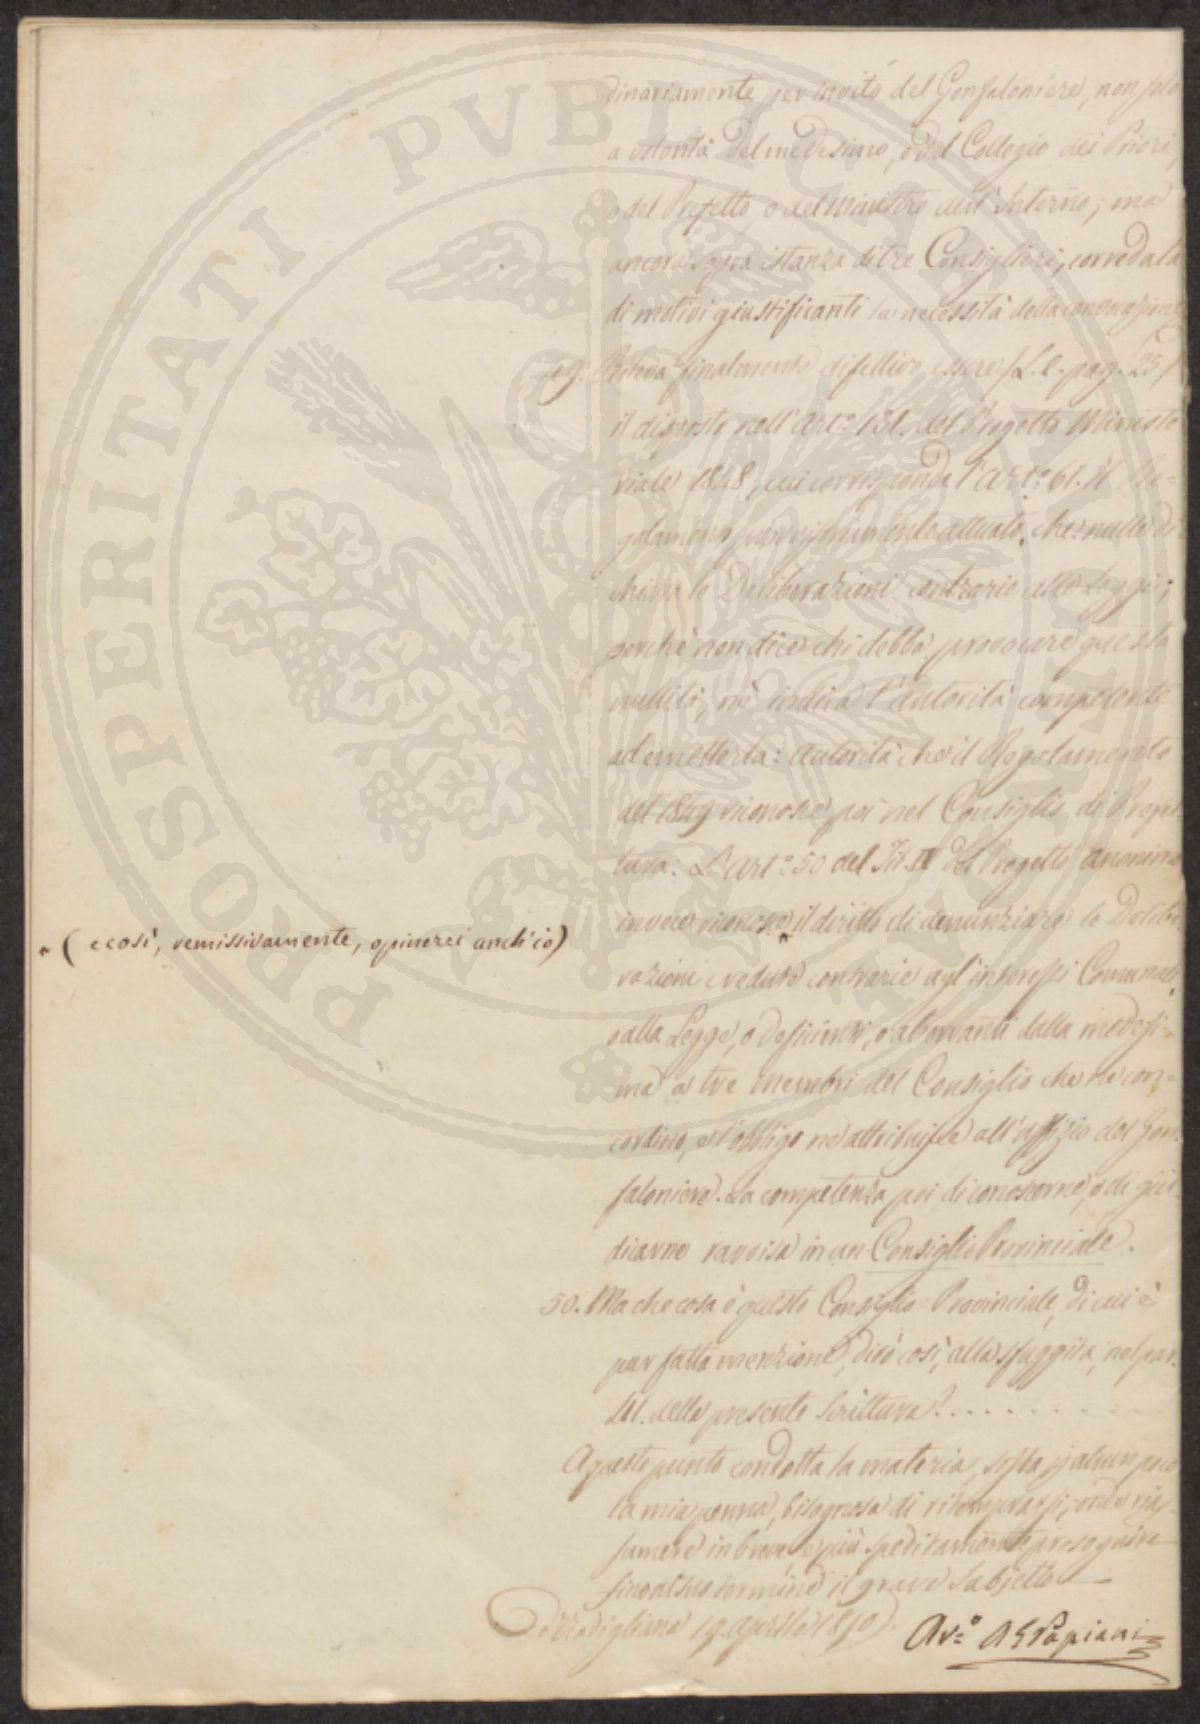 dinariamente per invito del Gonfaloniere, non solo
a volontà del medesimo, o del Collegio dei Priori,
o del Prefetto, o del Ministro dell'Interno; ma
ancora sopra istanza di tre Consiglieri, corredata
di motivi giustificanti la necessità della convocazione
49. finalmente difettivo essere /L. c. pag. 25/
il disposto nell'Art.° 131. del Progetto Ministe
riale 1848, cui corrisponde l'Art.° 61. il Re=
golamento attuato, che nulle di
chiara le Deliberazioni contrarie alle Leggi;
perchè non dice chi debba provocare questa
nullità, nè indica l'autorità competente
ad emetterla: autorità che il Regolamento
del 1849 riconosce poi nel Consiglio di Prefet
tura. L'Art.° 50 del Tit. IV del Progetto anonimo
invece riconosce * il diritto di denunziare le Delibe
* (e così, remissivamente, opinerei anch'io)
razioni credute contrarie agl'interessi Comunali,
o alla Legge, o deficienti, o aberranti dalla medesi=
ma a tre membri del Consiglio che ne con=
cordino, e l'obbligo ne attribuisce all'uffizio del Gon
faloniere. La competenza poi di conoscerne, o di giu
dicarne ravvisa in un Consiglio Provinciale.
50. Ma che cosa è questo Consiglio Provinciale, di cui è
pur fatta menzione, dirò così, alla sfuggita, nel par.
della presente Scrittura? . . . . . . . . .
A questo punto condotta la materia, sosta alcun poco
la mia penna, bisognosa di ritemprarsi, onde rias
sumere in breve, e più speditamente proseguire
fino al suo termine il grave subjetto
Da Modigliana 19. Aprile 1850.
Av.° A G Papiani